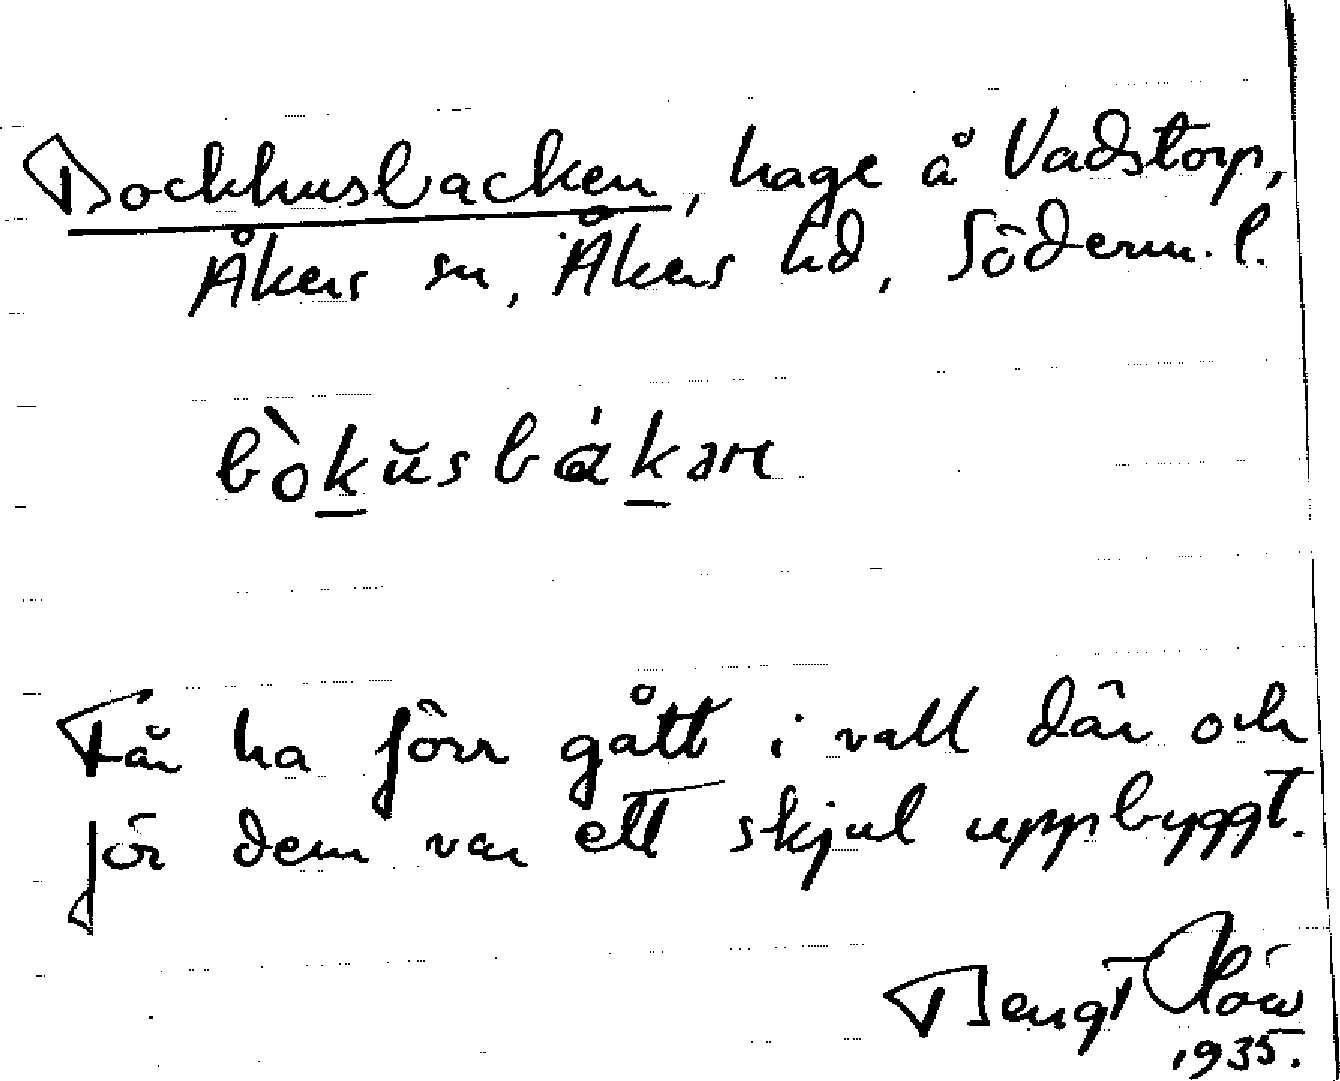 Bockhusbacken, hage å Vadstorp,
Åkers sn, Åkers hd, Söderm. l.
bòkŭsbákaɾe
Får ha förr gått i vall där och
för dem var ett skjul uppbyggt.
Bengt
1935.